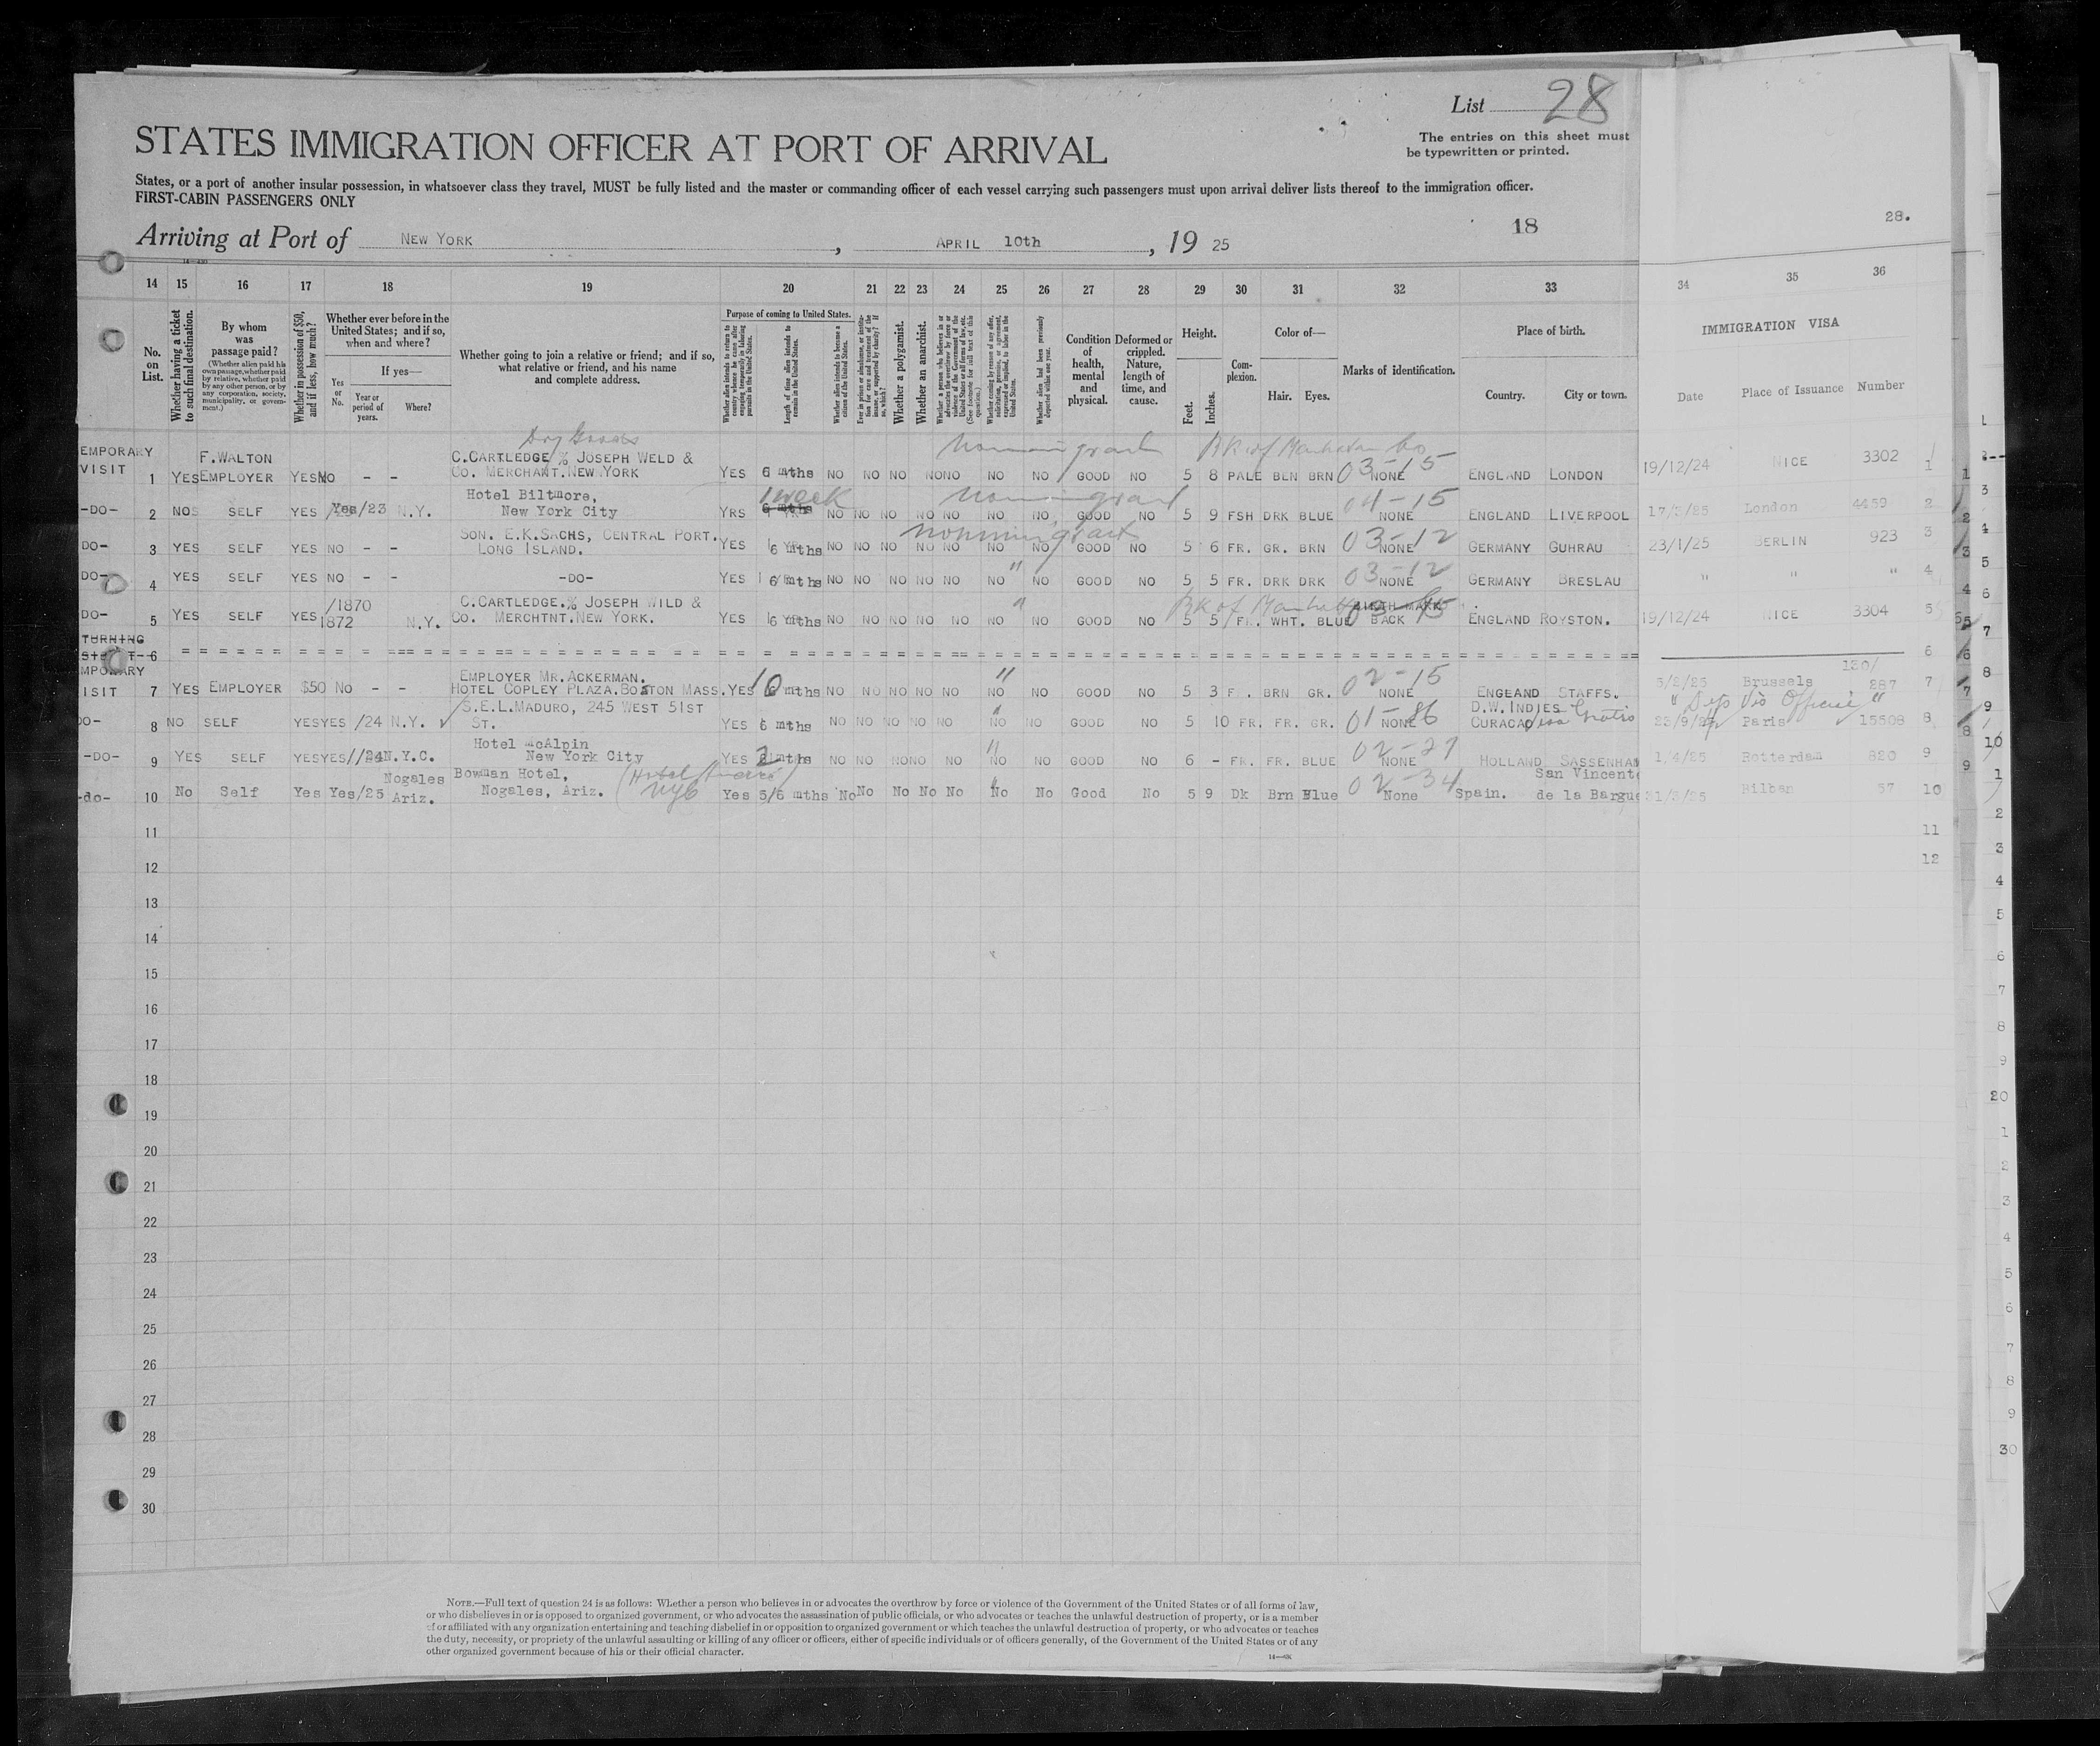 List 28
The entries on this sheet must
be typewritten or printed.
STATES IMMIGRATION OFFICER AT PORT OF ARRIVAL
States, or a port of another insular possession, in whatsoever class they travel, MUST be fully listed and the master or commanding officer of each vessel carrying such passengers must upon arrival deliver lists thereof to the immigration officer.
FIRST-CABIN PASSENGERS ONLY
28.
18
Arriving at Port of NEW YORK, APRIL 10th, 19 25
14 15 16 17 18 19 20 21 22 23 24 25 26 27 28 29 30 31 32 33 34 35 36
No. on List.
Whether having a ticket to such final destination.
By whom was passage paid?
(Whether alien paid his own passage, whether paid by relative, whether paid by any other person, or by any corporation, society, municipality, or government.)
Whether in possession of $50, and if less, how much?
Whether ever before in the United States; and if so, when and where?
If yes—
Yes or No.
Year or period of years.
Where?
Whether going to join a relative or friend; and if so, what relative or friend, and his name and complete address.
Purpose of coming to United States.
Whether alien intends to return to country whence he came after engaging temporarily in laboring pursuits in the United States.
Length of time alien intends to remain in the United States.
Whether alien intends to become a citizen of the United States.
Ever in prison or almshouse, or institution for care and treatment of the insane, or supported by charity? If so, which?
Whether a polygamist.
Whether an anarchist.
Whether a person who believes in or advocates the overthrow by force or violence of the Government of the United States or all forms of law, etc. (See footnote for full text of this question.)
Whether coming by reason of any offer, solicitation, promise, or agreement, expressed or implied, to labor in the United States.
Whether alien had been previously deported within one year.
Condition of health, mental and physical.
Deformed or crippled. Nature, length of time, and cause.
Height.
Feet. Inches.
Complexion.
Color of—
Hair. Eyes.
Marks of identification.
Place of birth.
Country. City or town.
IMMIGRATION VISA
Date Place of Issuance Number
EMPORARY VISIT 1 YES F.WALTON EMPLOYER YES NO - - Dry Goods C.CARTLEDGE % JOSEPH WELD & CO. MERCHANT.NEW YORK YES 6 mths NO NO NO NO NO NO NO GOOD NO 5 8 PALE BLN BRN 03-15 NONE ENGLAND LONDON 19/12/24 NICE 3302 1
-DO- 2 NO SELF YES Yes/23 N.Y. Hotel Biltmore, New York City YRS 1 week 6 mths NO NO NO NO NO NO NO GOOD NO 5 9 FSH DRK BLUE 04-15 NONE ENGLAND LIVERPOOL 17/3/25 London 4459 2
DO- 3 YES SELF YES NO - - SON. E.K.SACHS, CENTRAL PORT. LONG ISLAND. YES 6 mths NO NO NO NO NO NO NO GOOD NO 5 6 FR. GR. BRN 03-12 NONE GERMANY GUHRAU 23/1/25 BERLIN 923 3
DO- 4 YES SELF YES NO - - -DO- YES 6 mths NO NO NO NO NO NO " NO GOOD NO 5 5 FR. DRK DRK 03-12 NONE GERMANY BRESLAU " " " 4
DO- 5 YES SELF YES /1870 1872 N.Y. C.CARTLEDGE.% JOSEPH WILD & CO. MERCHTNT.NEW YORK. YES 6 mths NO NO NO NO NO NO " NO GOOD NO 5 5 FR. WHT. BLUE BIRTH MARK BACK ENGLAND ROYSTON. 19/12/24 NICE 3304 5
6 = = = = = = 6
MPORARY ISIT 7 YES EMPLOYER $50 NO - - EMPLOYER MR.ACKERMAN. HOTEL COPLEY PLAZA.BOSTON MASS. YES 10 mths NO NO NO NO NO NO " NO GOOD NO 5 3 F . BRN GR. 02-15 NONE ENGLAND STAFFS. 5/2/25 Brussels 130/ 287 7
DO- 8 NO SELF YES YES /24 N.Y. S.E.L.MADURO, 245 WEST 51ST ST. YES 6 mths NO NO NO NO NO NO NO GOOD NO 5 10 FR. FR. GR. 01-86 NONE D.W.INDIES CURACAO Paris 15508 8
-DO- 9 YES SELF YES YES//24 N.Y.C. Hotel mcAlpin New York City YES 2 mths NO NO NO NO NO NO " NO GOOD NO 6 - FR. FR. BLUE 02-27 NONE HOLLAND SASSENHAM 1/4/25 Rotterdam 820 9
-do- 10 No Self Yes Yes/25 Nogales Ariz. Bowman Hotel, Nogales, Ariz. NYC Yes 5/6 mths No No No No No No No Good No 5 9 Dk Brn Blue 02-34 None Spain. San Vincente de la Barque 31/3/25 Bilbao 57 10
11 11
12 12
13
14
15
16
17
18
19
20
21
22
23
24
25
26
27
28
29
30
NOTE.—Full text of question 24 is as follows: Whether a person who believes in or advocates the overthrow by force or violence of the Government of the United States or of all forms of law,
or who disbelieves in or is opposed to organized government, or who advocates the assassination of public officials, or who advocates or teaches the unlawful destruction of property, or is a member
of or affiliated with any organization entertaining and teaching disbelief in or opposition to organized government or which teaches the unlawful destruction of property, or who advocates or teaches
the duty, necessity, or propriety of the unlawful assaulting or killing of any officer or officers, either of specific individuals or of officers generally, of the Government of the United States or of any
other organized government because of his or their official character.